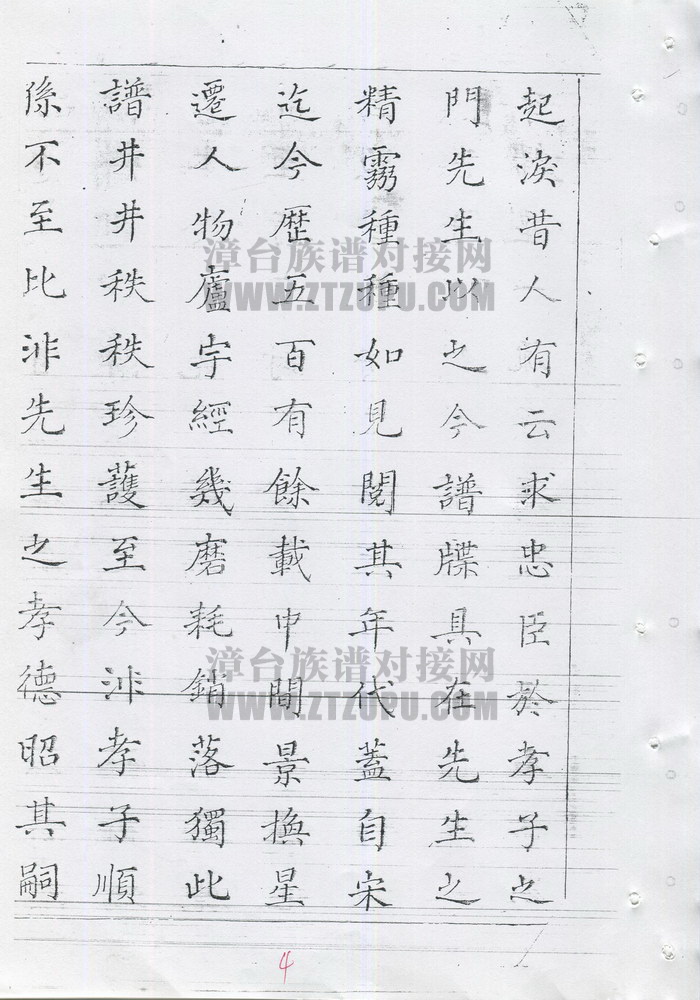 起淚昔人有云求忠臣於孝子之
門先生以之今譜牒具在先生之
精靈種種如見閱其年代蓋自宋
迄今歷五百有餘載中間景換星
遷人物廬宇經幾磨耗銷落獨此
譜井井秩秩珍護至今非孝子順
孫不至比非先生之孝德昭其嗣
漳台族谱对接网
WWW.ZTZUPU.COM
漳台族谱对接网
WWW.ZTZUPU.COM
4